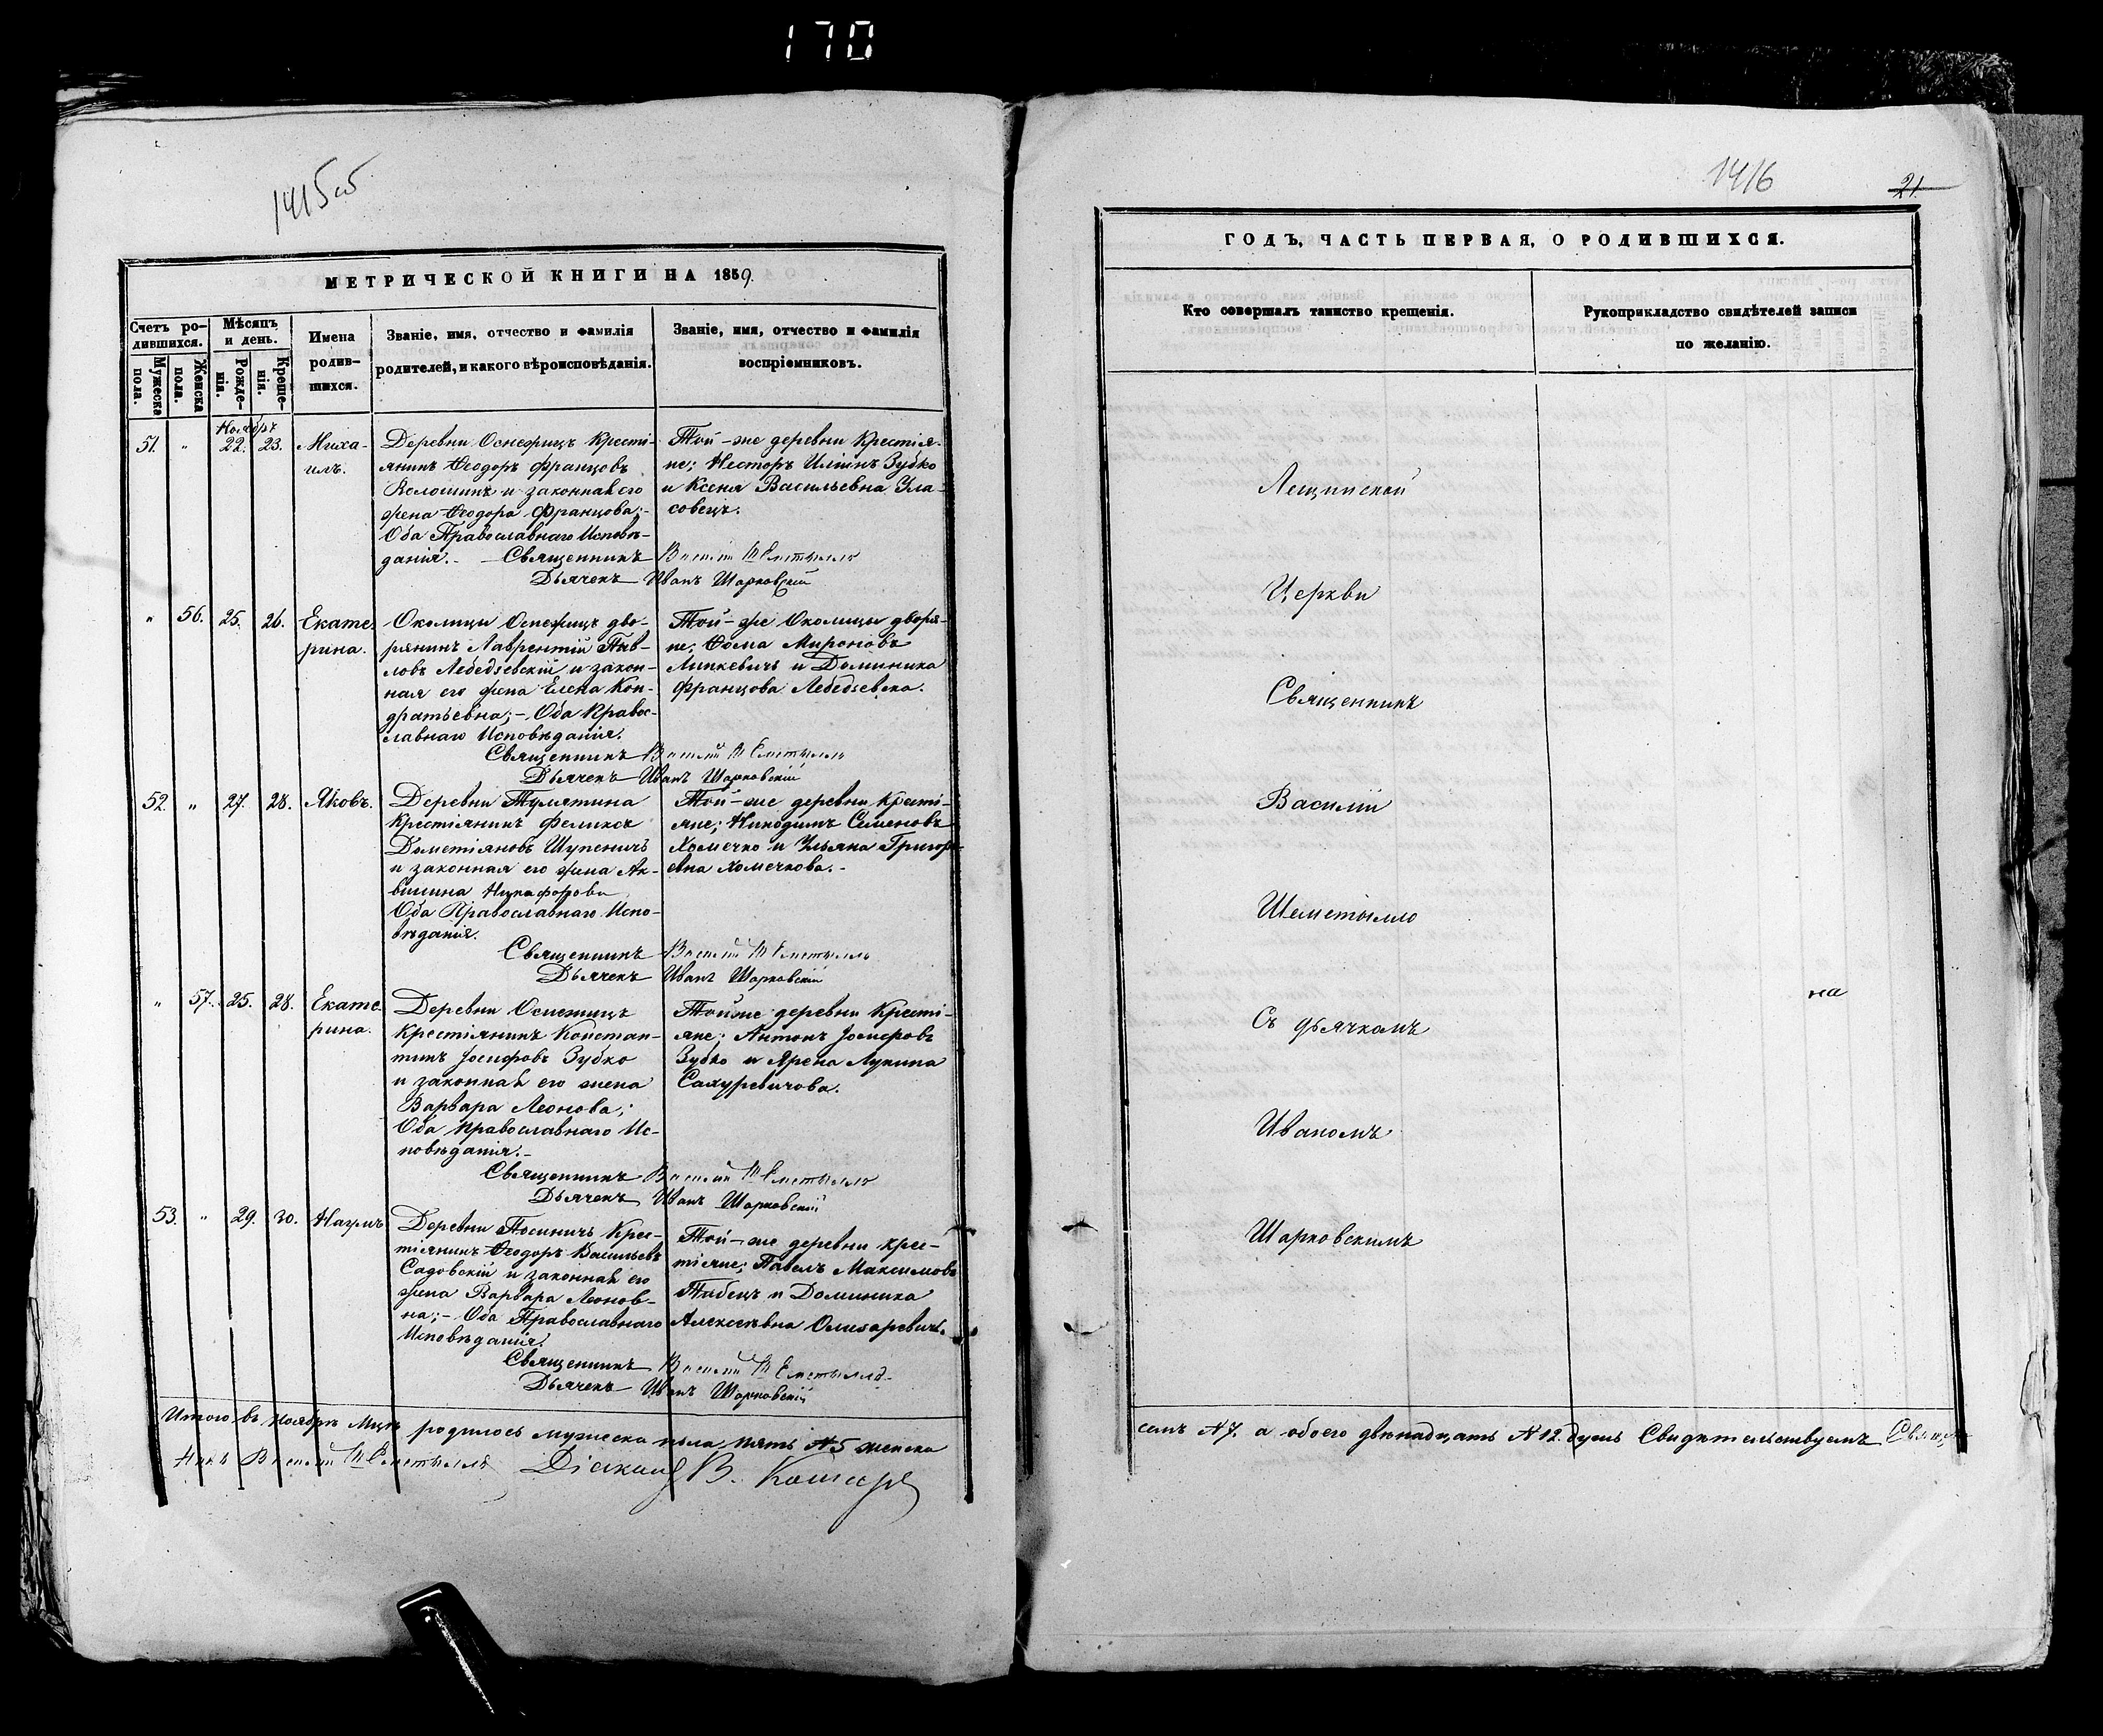 170
1415об
МЕТРИЧЕСКОЙ КНИГИ НА 1859.
Счетъ ро-
дившихся.
Мужеска пола.
Женска пола.
Мѣсяцъ
и день.
Рожде-
нія.
Креще-
нія.
Имена
родив-
шихся.
Званіе, имя, отчество и фамилія
родителей, и какого вѣроисповѣданія.
Званіе, имя, отчество и фамилія
воспріемниковъ.
Ноябрь
51. " 22. 23. Миха-
илъ.
Деревни Оснежицъ Кресті-
янинъ Ѳеодоръ Францовъ
Волошинъ и законная его
жена Ѳеодора Францова;-
Оба Православнаго Исповѣ-
данія.-
Той-же деревни Крестія-
не; Несторъ Илiинъ Зубко
и Ксенія Васильевна Ула-
совецъ.
Священникъ Василій Шеметылло
Дьячекъ Иванъ Шарковскій
" 56. 25. 26. Екате-
рина.
Околицы Оснежицъ дво-
рянинъ Лаврентій Пав-
ловъ Лебедзевскій и закон-
ная его жена Елена Кон-
дратьевна;- Оба Правос-
лавнаго Исповѣданія.
Той-же Околицы дворя-
не; Ѳома Мироновъ
Липкевичъ и Доминика
Францова Лебедзевска.
Священникъ Василій Шеметылло
Дьячекъ Иванъ Шарковскій
52. " 27. 28. Яковъ.
Деревни Тулятина
Крестіянинъ Феликсъ
Деметіяновъ Шупеничъ
и законная его жена Ак-
вилина Никифорова
Оба Православнаго Испо-
вѣданія.
Той-же деревни Кресті-
яне; Никодимъ Семеновъ
Хомечко и Ульяна Григорь-
евна Хомечкова.-
Священникъ Василій Шеметылло
Дьячекъ Иванъ Шарковскій
" 57. 25. 28. Екате-
рина.
Деревни Оснежицъ
Крестіянинъ Констан-
тинъ Іосифовъ Зубко
и законная его жена
Варвара Леонова;
Оба Православнаго Ис-
повѣданія.-
Тойже деревни Кресті-
яне; Антонъ Іосифовъ
Зубко и Ярена Лукина
Сахуревичова.
Священникъ Василій Шеметылло
Дьячекъ Иванъ Шарковскій
53. " 29. 30. Наумъ
Деревни Посеничъ Крес-
тіянинъ Ѳеодоръ Васильевъ
Садовскій и законная его
жена Варвара Леонов-
на;- Оба Православнаго
Исповѣданія.
Той-же деревни крес-
тіяне; Павелъ Максимовъ
и Доминика
Алексѣевна Олизаревичъ.
Священникъ Василій Шеметылло
Дьячекъ Иванъ Шарковскій
Итого въ Ноябрѣ Мцѣ родилось мужеска пола пять №5 женска
никъ Василій Шеметылло Діаконъ В.
1416
21
ГОДЪ, ЧАСТЬ ПЕРВАЯ, О РОДИВШИХСЯ.
Кто совершалъ таинство крещенія.
Рукоприкладство свидѣтелей записи
по желанію.
Лещинской
Церкви
Священникъ
Василій
Шеметылло
на
Съ дьячкомъ
Иваномъ
Шарковскимъ
семь №7. а обоего двѣнадцать №12. душъ Свидѣтельствуемъ Свящ